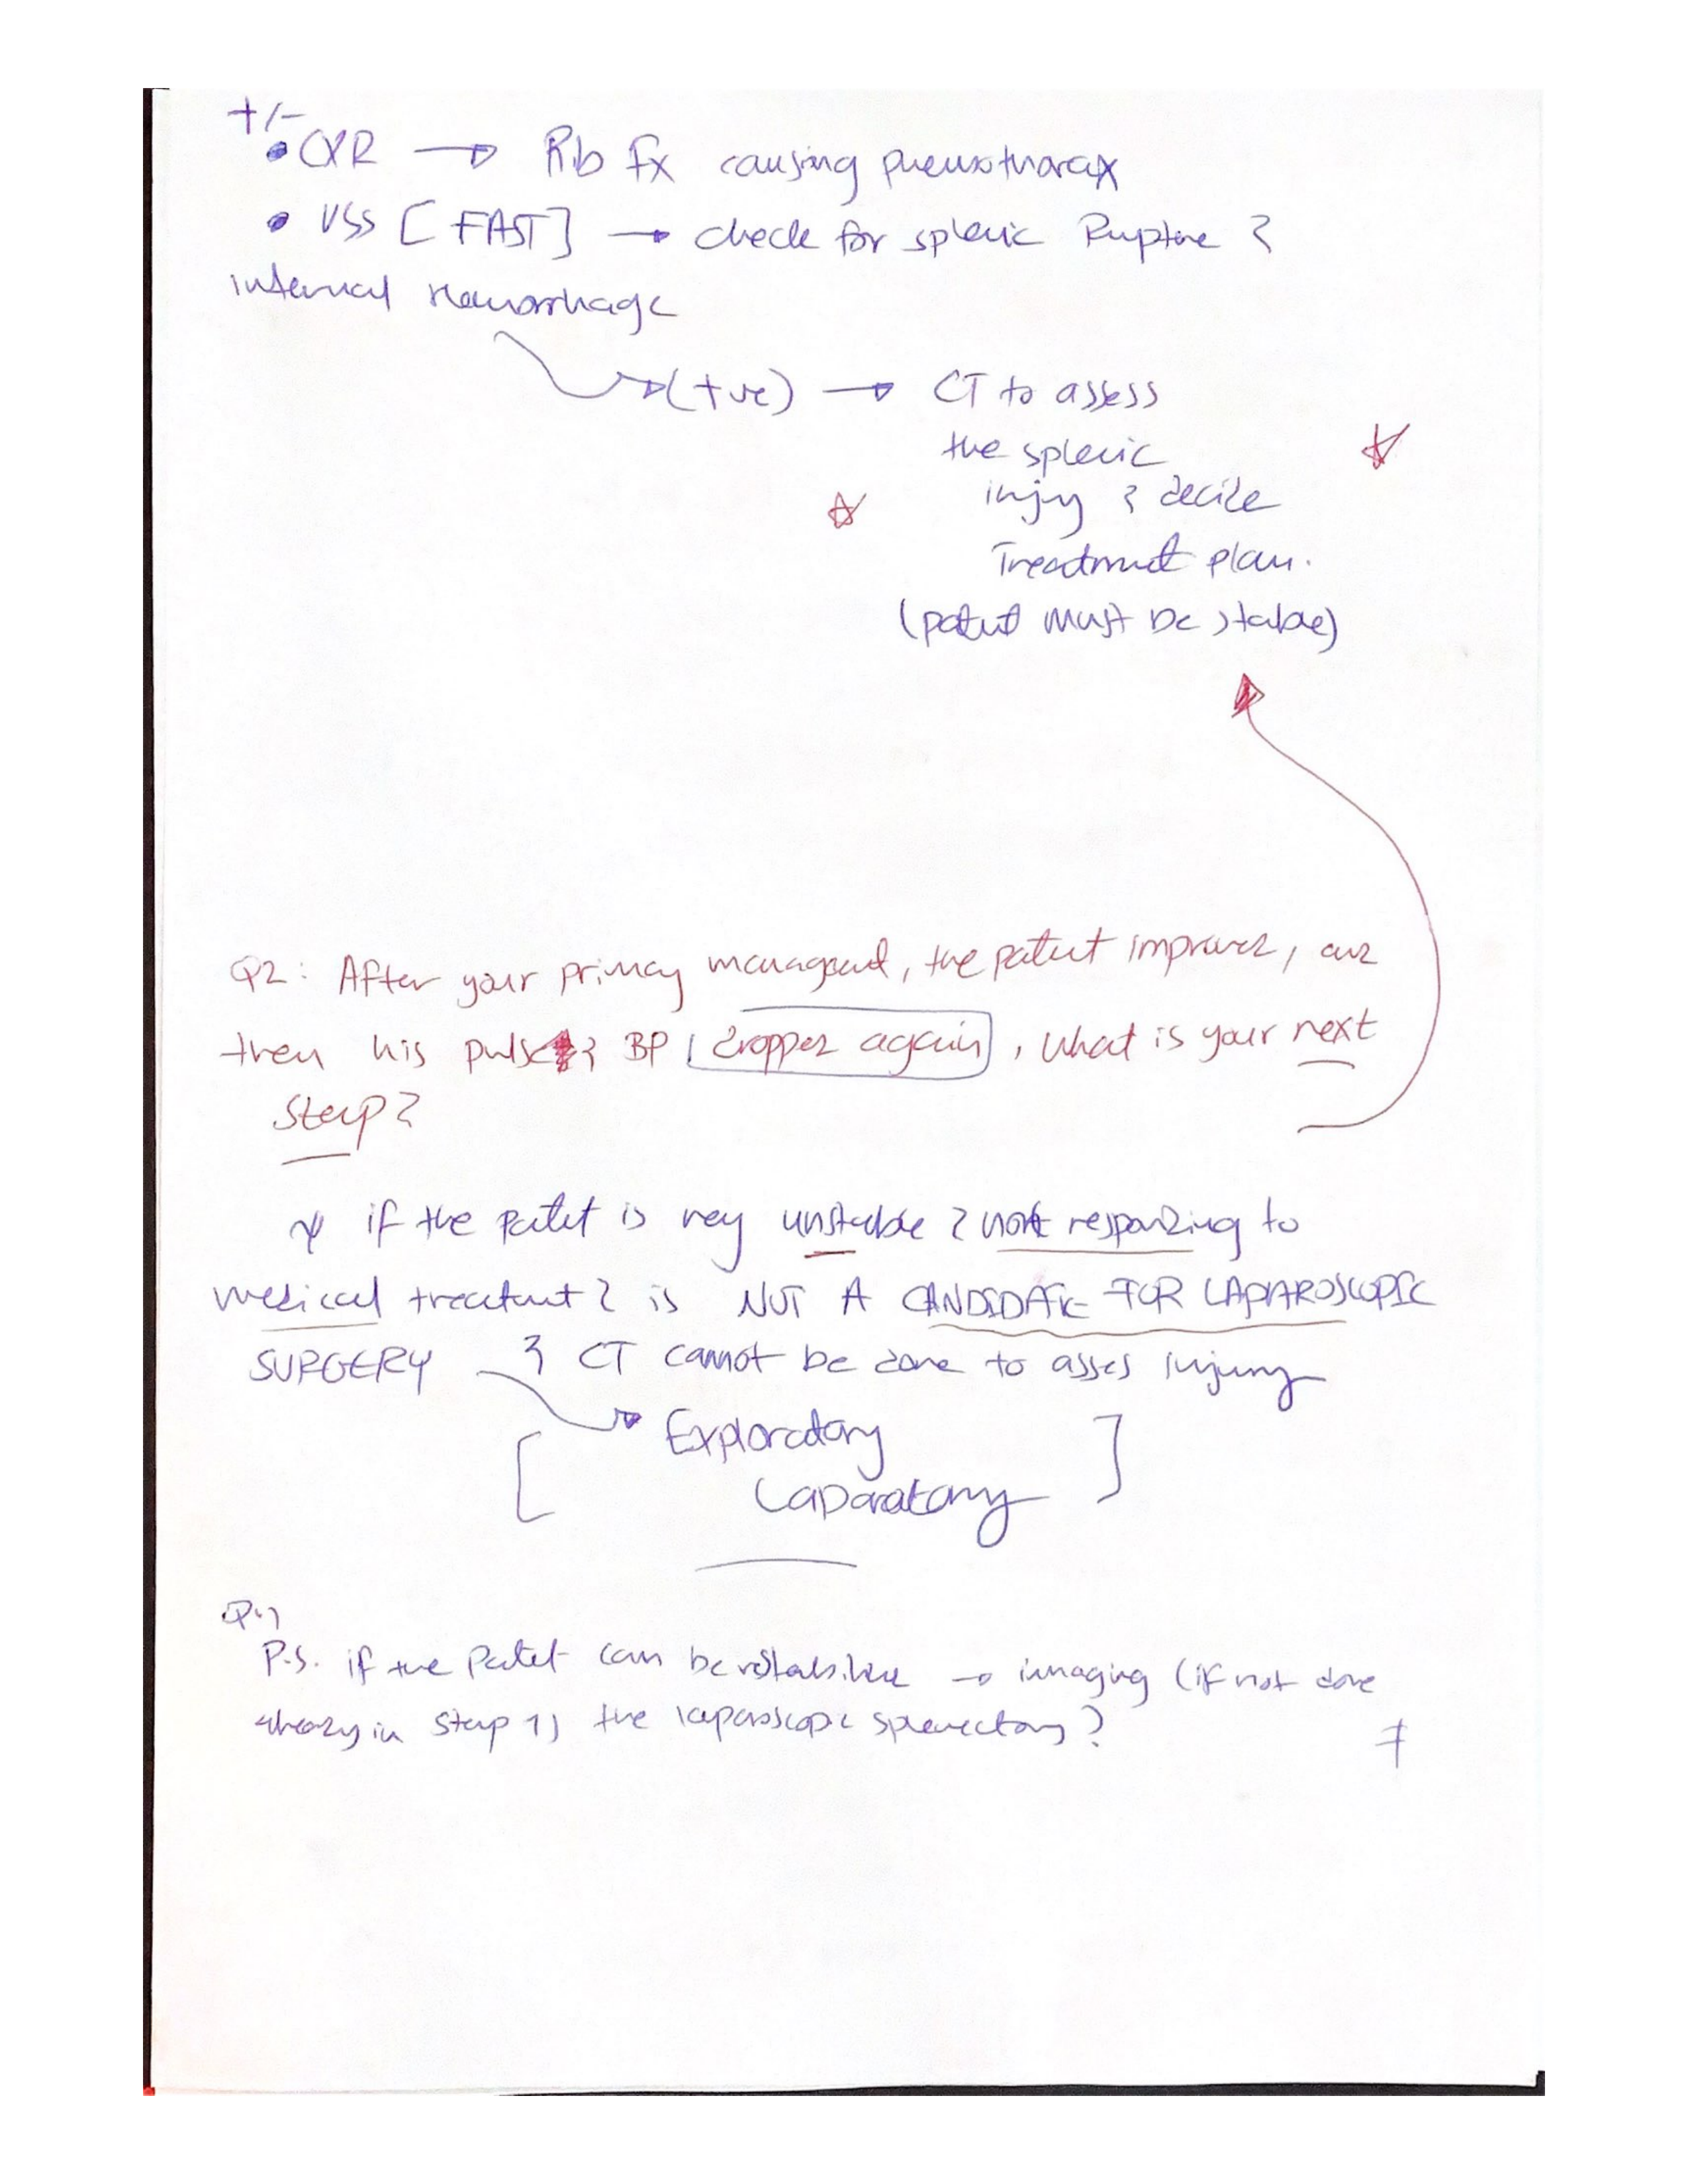 +/-
• CXR → Rib fx causing pneumothorax
• USS [FAST] → check for splenic Rupture &
internal Hemorrhage
→ (+ve) → CT to assess
the splenic
injury & decide
Treatment plan.
(patient must be stable)
Q2: After your primary management, the patient improved, and
then his pulse & BP dropped again, what is your next
step?
if the patient is very unstable & not responding to
medical treatment & is NOT A CANDIDATE FOR LAPAROSCOPIC
SURGERY & CT cannot be done to asses injury
[ → Exploratory ]
Laparatomy
P.S. if the patient can be → imaging (if not done
already in step 1) the laparoscopic splenectomy?